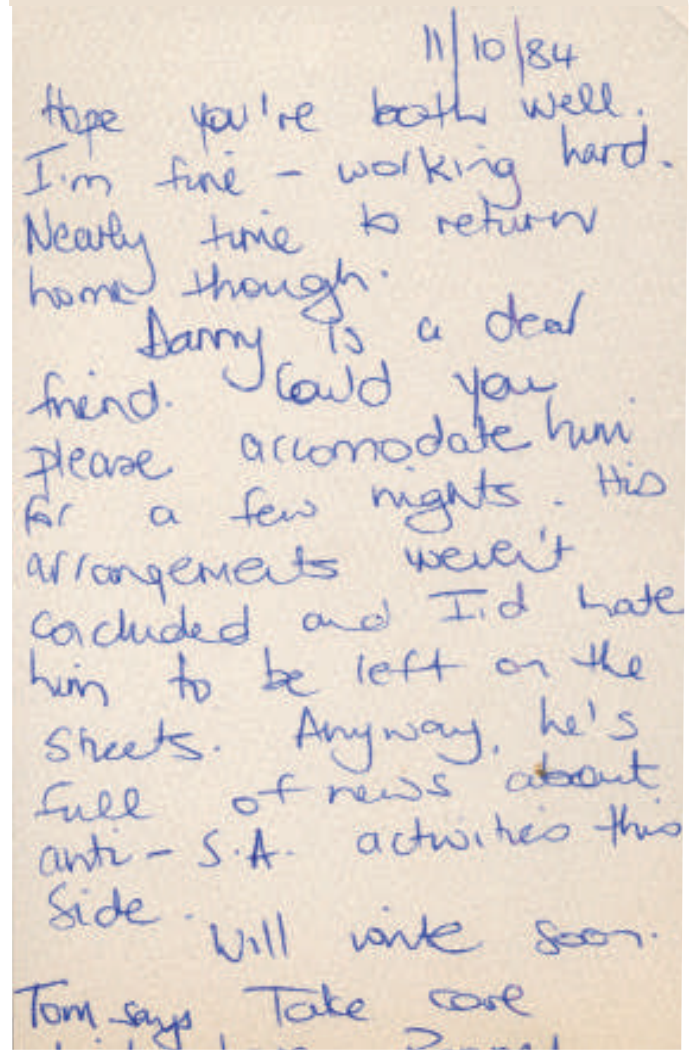 11/10/84
Hope you're both well.
I'm fine - working hard.
Nearly time to return
home though.
Danny is a dear
friend. Could you
please accomodate him
for a few nights. His
arrangements weren't
concluded and I'd hate
him to be left on the
streets. Anyway, he's
full of news about
anti-S.A. activities this
side.
Will write soon.
Tom says Take care